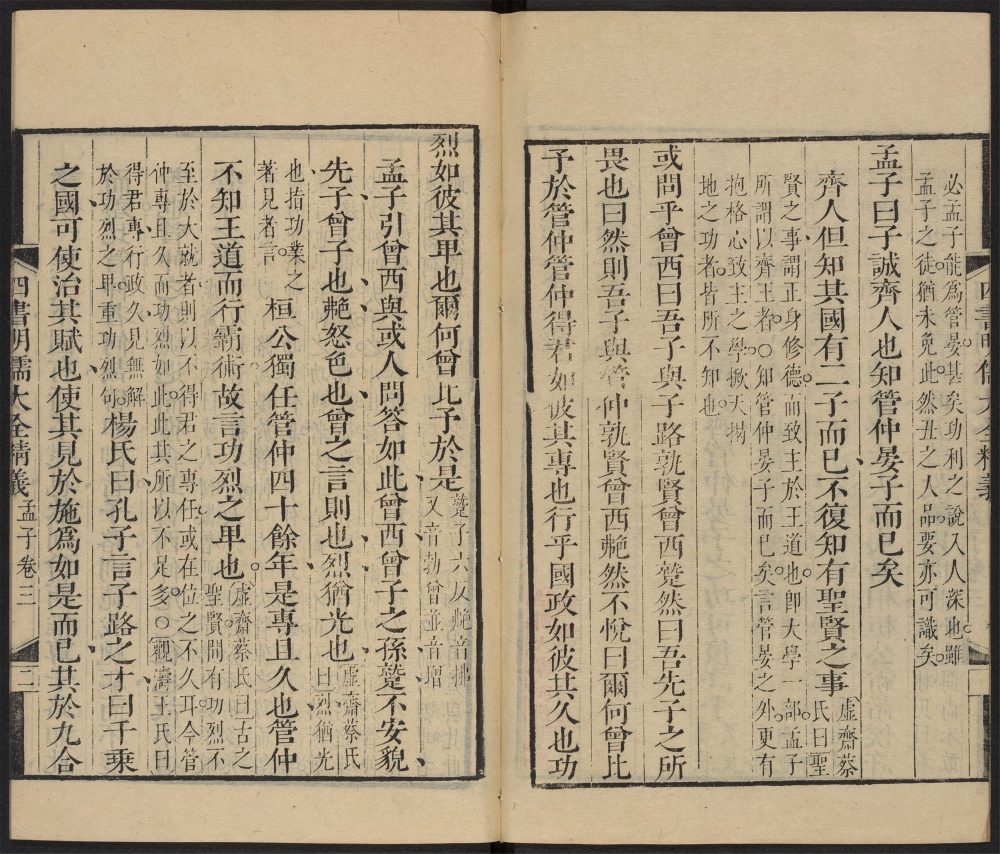 必孟子能爲管晏甚矣功利之說入人深也雖
孟子之徒猶未免此然丑之人品要亦可識矣
孟子曰子誠齊人也知管仲晏子而已矣
齊人但知其國有二子而已不復知有聖賢之事
虛齋蔡氏曰聖
賢之事謂正身修德而致主於王道也卽大學一部孟子
所謂以齊王者○知管仲晏子而已矣言管晏之外更有
抱格心致主之學掀天揭
地之功者皆所不知也
或問乎曾西曰吾子與子路孰賢曾西蹵然曰吾先子之所
畏也曰然則吾子與管仲孰賢曾西艴然不悅曰爾何曾比
予於管仲管仲得君如彼其專也行乎國政如彼其久也功
烈如彼其卑也爾何曾比予於是
蹵子六反艴音拂
又音勃曾並音增
孟子引曾西與或人問答如此曾西曾子之孫蹵不安貌
先子曾子也艴怒色也曾之言則也烈猶光也
虛齋蔡氏
曰烈猶光
也指功業之
著見者言
桓公獨任管仲四十餘年是專且久也管仲
不知王道而行霸術故言功烈之卑也
虛齋蔡氏曰古之
聖賢間有功烈不
至於大就者則以不得君之專任或在位之不久耳今管
仲專且久而功烈如此此其所以不足多○觀濤王氏曰
得君專行政久見無解
於功烈之卑重功烈句
楊氏曰孔子言子路之才曰千乘
之國可使治其賦也使其見於施爲如是而已其於九合
四書明儒大全精義 孟子卷三 二